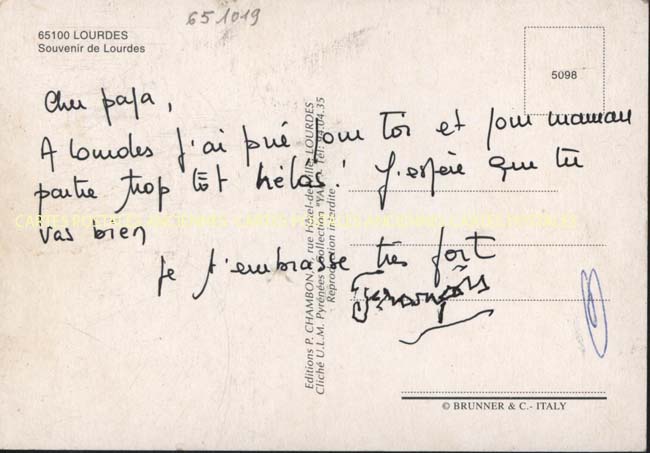 651019
65100 LOURDES
Souvenir de Lourdes
5098
Cher papa,
A Lourdes j'ai prié pour toi et pour maman
partie trop tôt hélas! J'espère que tu
vas bien
je t'embrasse très fort
François
Editions P. CHAMBON, rue Hôtel-de-Ville, LOURDES
Cliché U.L.M. Pyrénées Collection "YAN" Tél. 94.04.35
Reproduction interdite
CARTES POSTALES ANCIENNES CARTES POSTALES ANCIENNES CARTES POSTALES
© BRUNNER & C. - ITALY